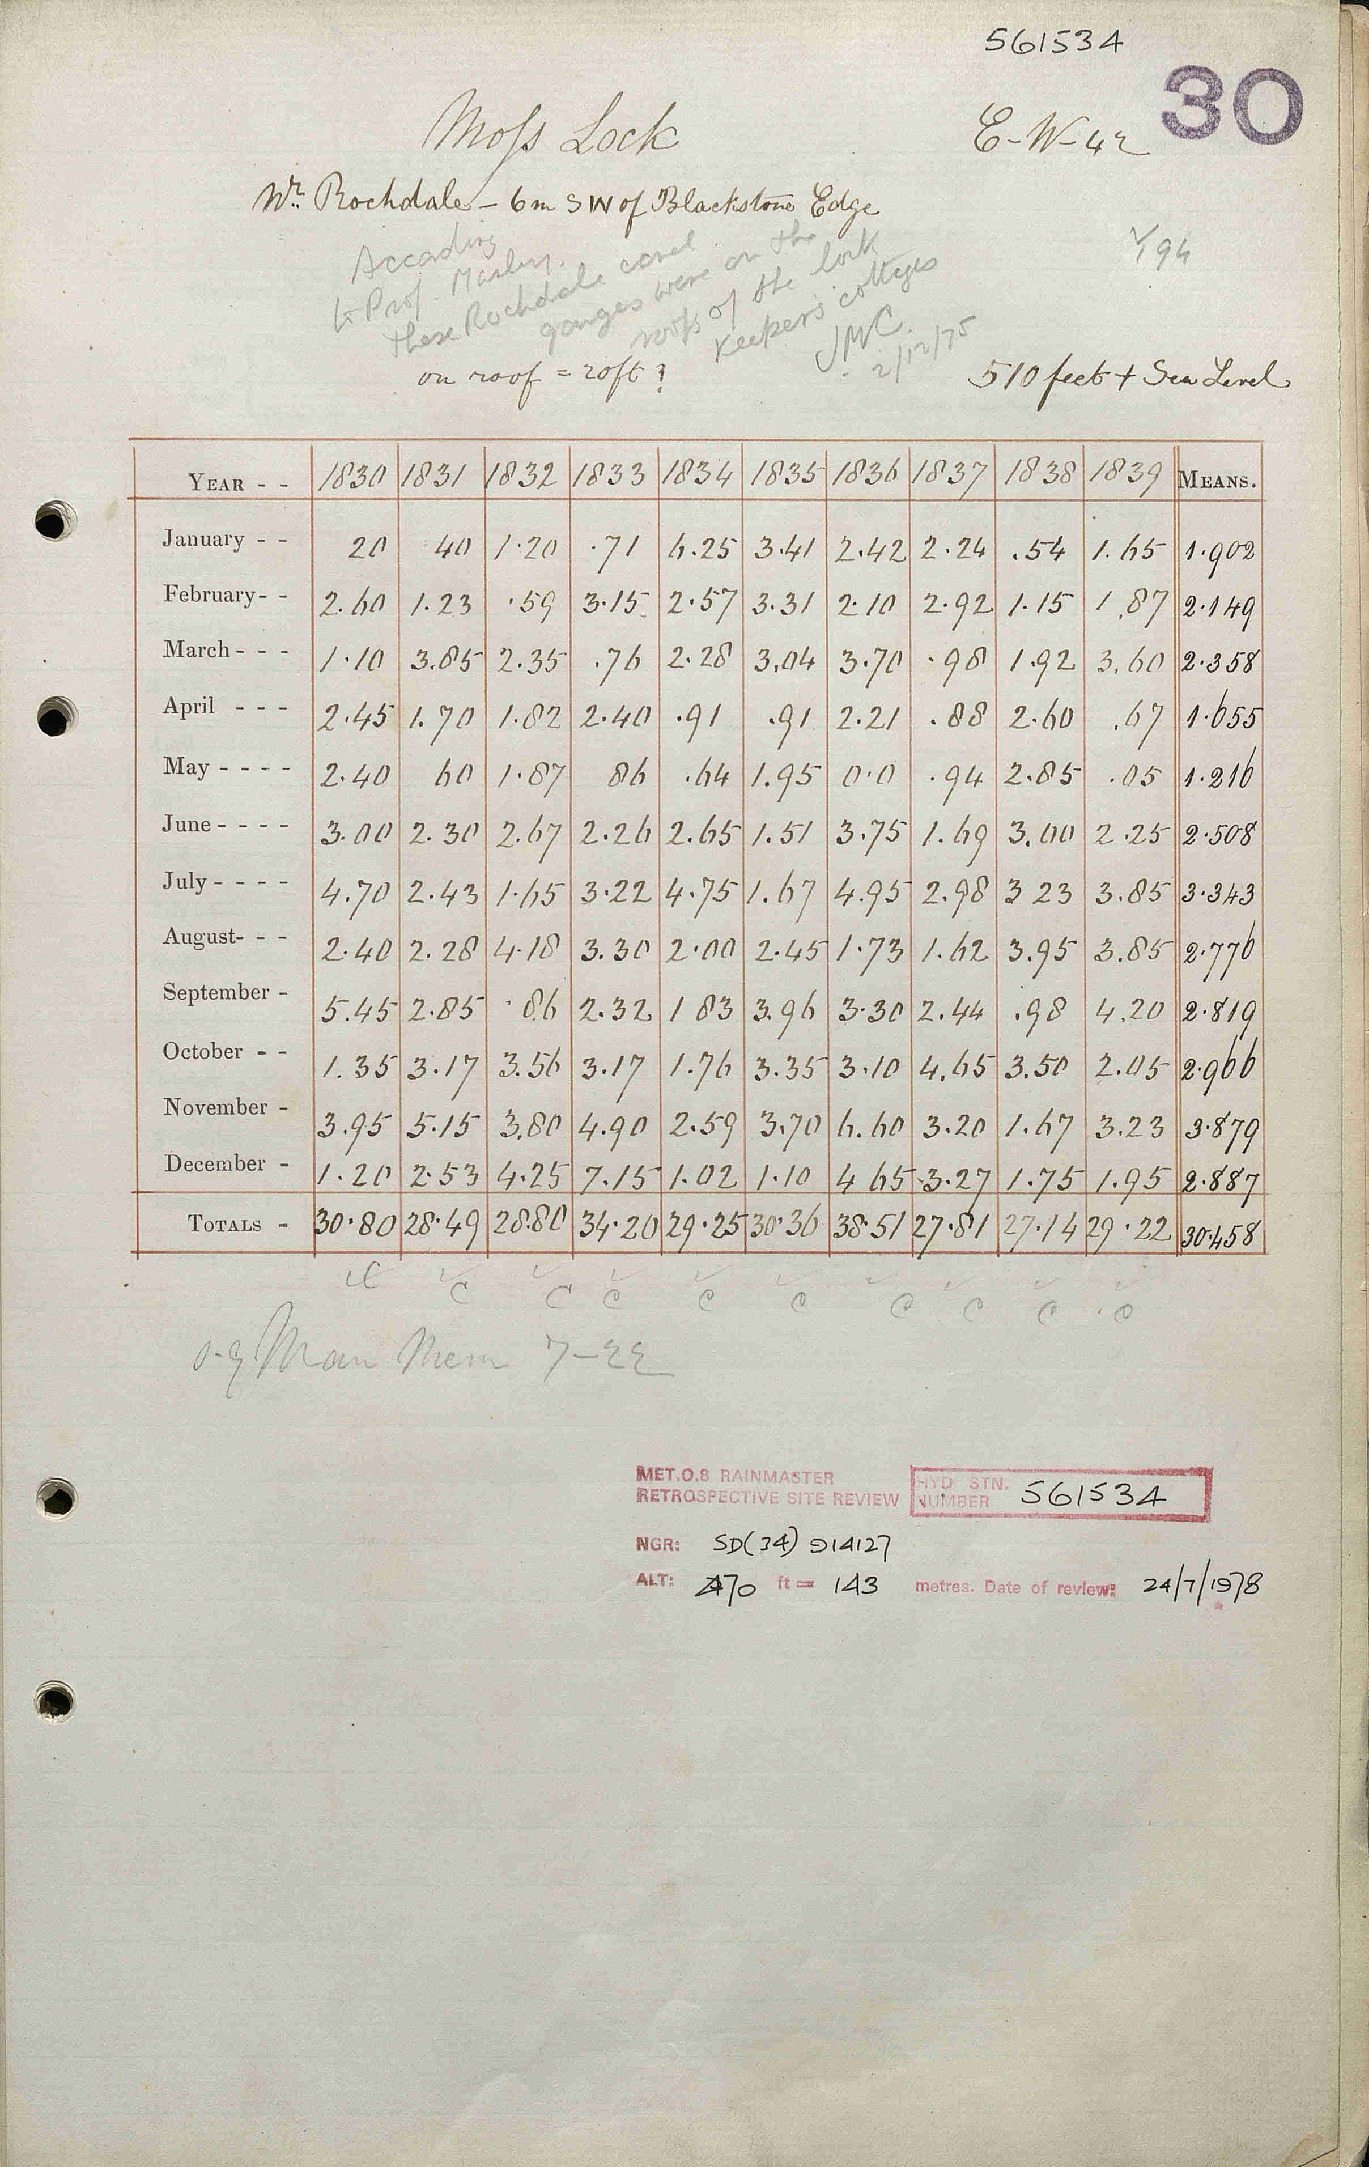 561534
30
Moss Lock
E-W-42
Nr. Rochdale - 6m SW of Blackstone Edge
194
According
to Prof. Manley.
these Rochdale canal
gauges were on the
roofs of the lock
keepers cottages
JMC.
2/12/75
on roof = 20ft ?
510 feet + Sea Level
YEAR - - 1830 1831 1832 1833 1834 1835 1836 1837 1838 1839 MEANS.
January - - 20 40 1.20 .71 6.25 3.41 2.42 2.24 .54 1.65 1.902
February - - 2.60 1.23 .59 3.15 2.57 3.31 2.10 2.92 1.15 1.87 2.149
March - - - 1.10 3.85 2.35 .76 2.28 3.04 3.70 .98 1.92 3.60 2.358
April - - - 2.45 1.70 1.82 2.40 .91 .91 2.21 .88 2.60 .67 1.655
May - - - - 2.40 60 1.87 86 .64 1.95 0.0 .94 2.85 .05 1.216
June - - - - 3.00 2.30 2.67 2.26 2.65 1.51 3.75 1.69 3.00 2.25 2.508
July - - - - 4.70 2.43 1.65 3.22 4.75 1.67 4.95 2.98 3 23 3.85 3.343
August - - - 2.40 2.28 4.18 3.30 2.00 2.45 1.73 1.62 3.95 3.85 2.776
September - 5.45 2.85 .86 2.32 1 83 3.96 3.30 2.44 .98 4.20 2.819
October - - 1.35 3.17 3.56 3.17 1.76 3.35 3.10 4.65 3.50 2.05 2.966
November - 3.95 5.15 3.80 4.90 2.59 3.70 6.60 3.20 1.67 3.23 3.879
December - 1.20 2.53 4.25 7.15 1.02 1.10 4 65 3.27 1.75 1.95 2.887
TOTALS - 30.80 28.49 28.80 34.20 29.25 30.36 38.51 27.81 27.14 29.22 30.458
C C C C C C C C C C
Man Mem 7-22
MET.O.8 RAINMASTER
RETROSPECTIVE SITE REVIEW
HYD STN. NUMBER 561534
NGR: SD(34) 914127
ALT: 470 ft = 143 metres. Date of review: 24/7/1978